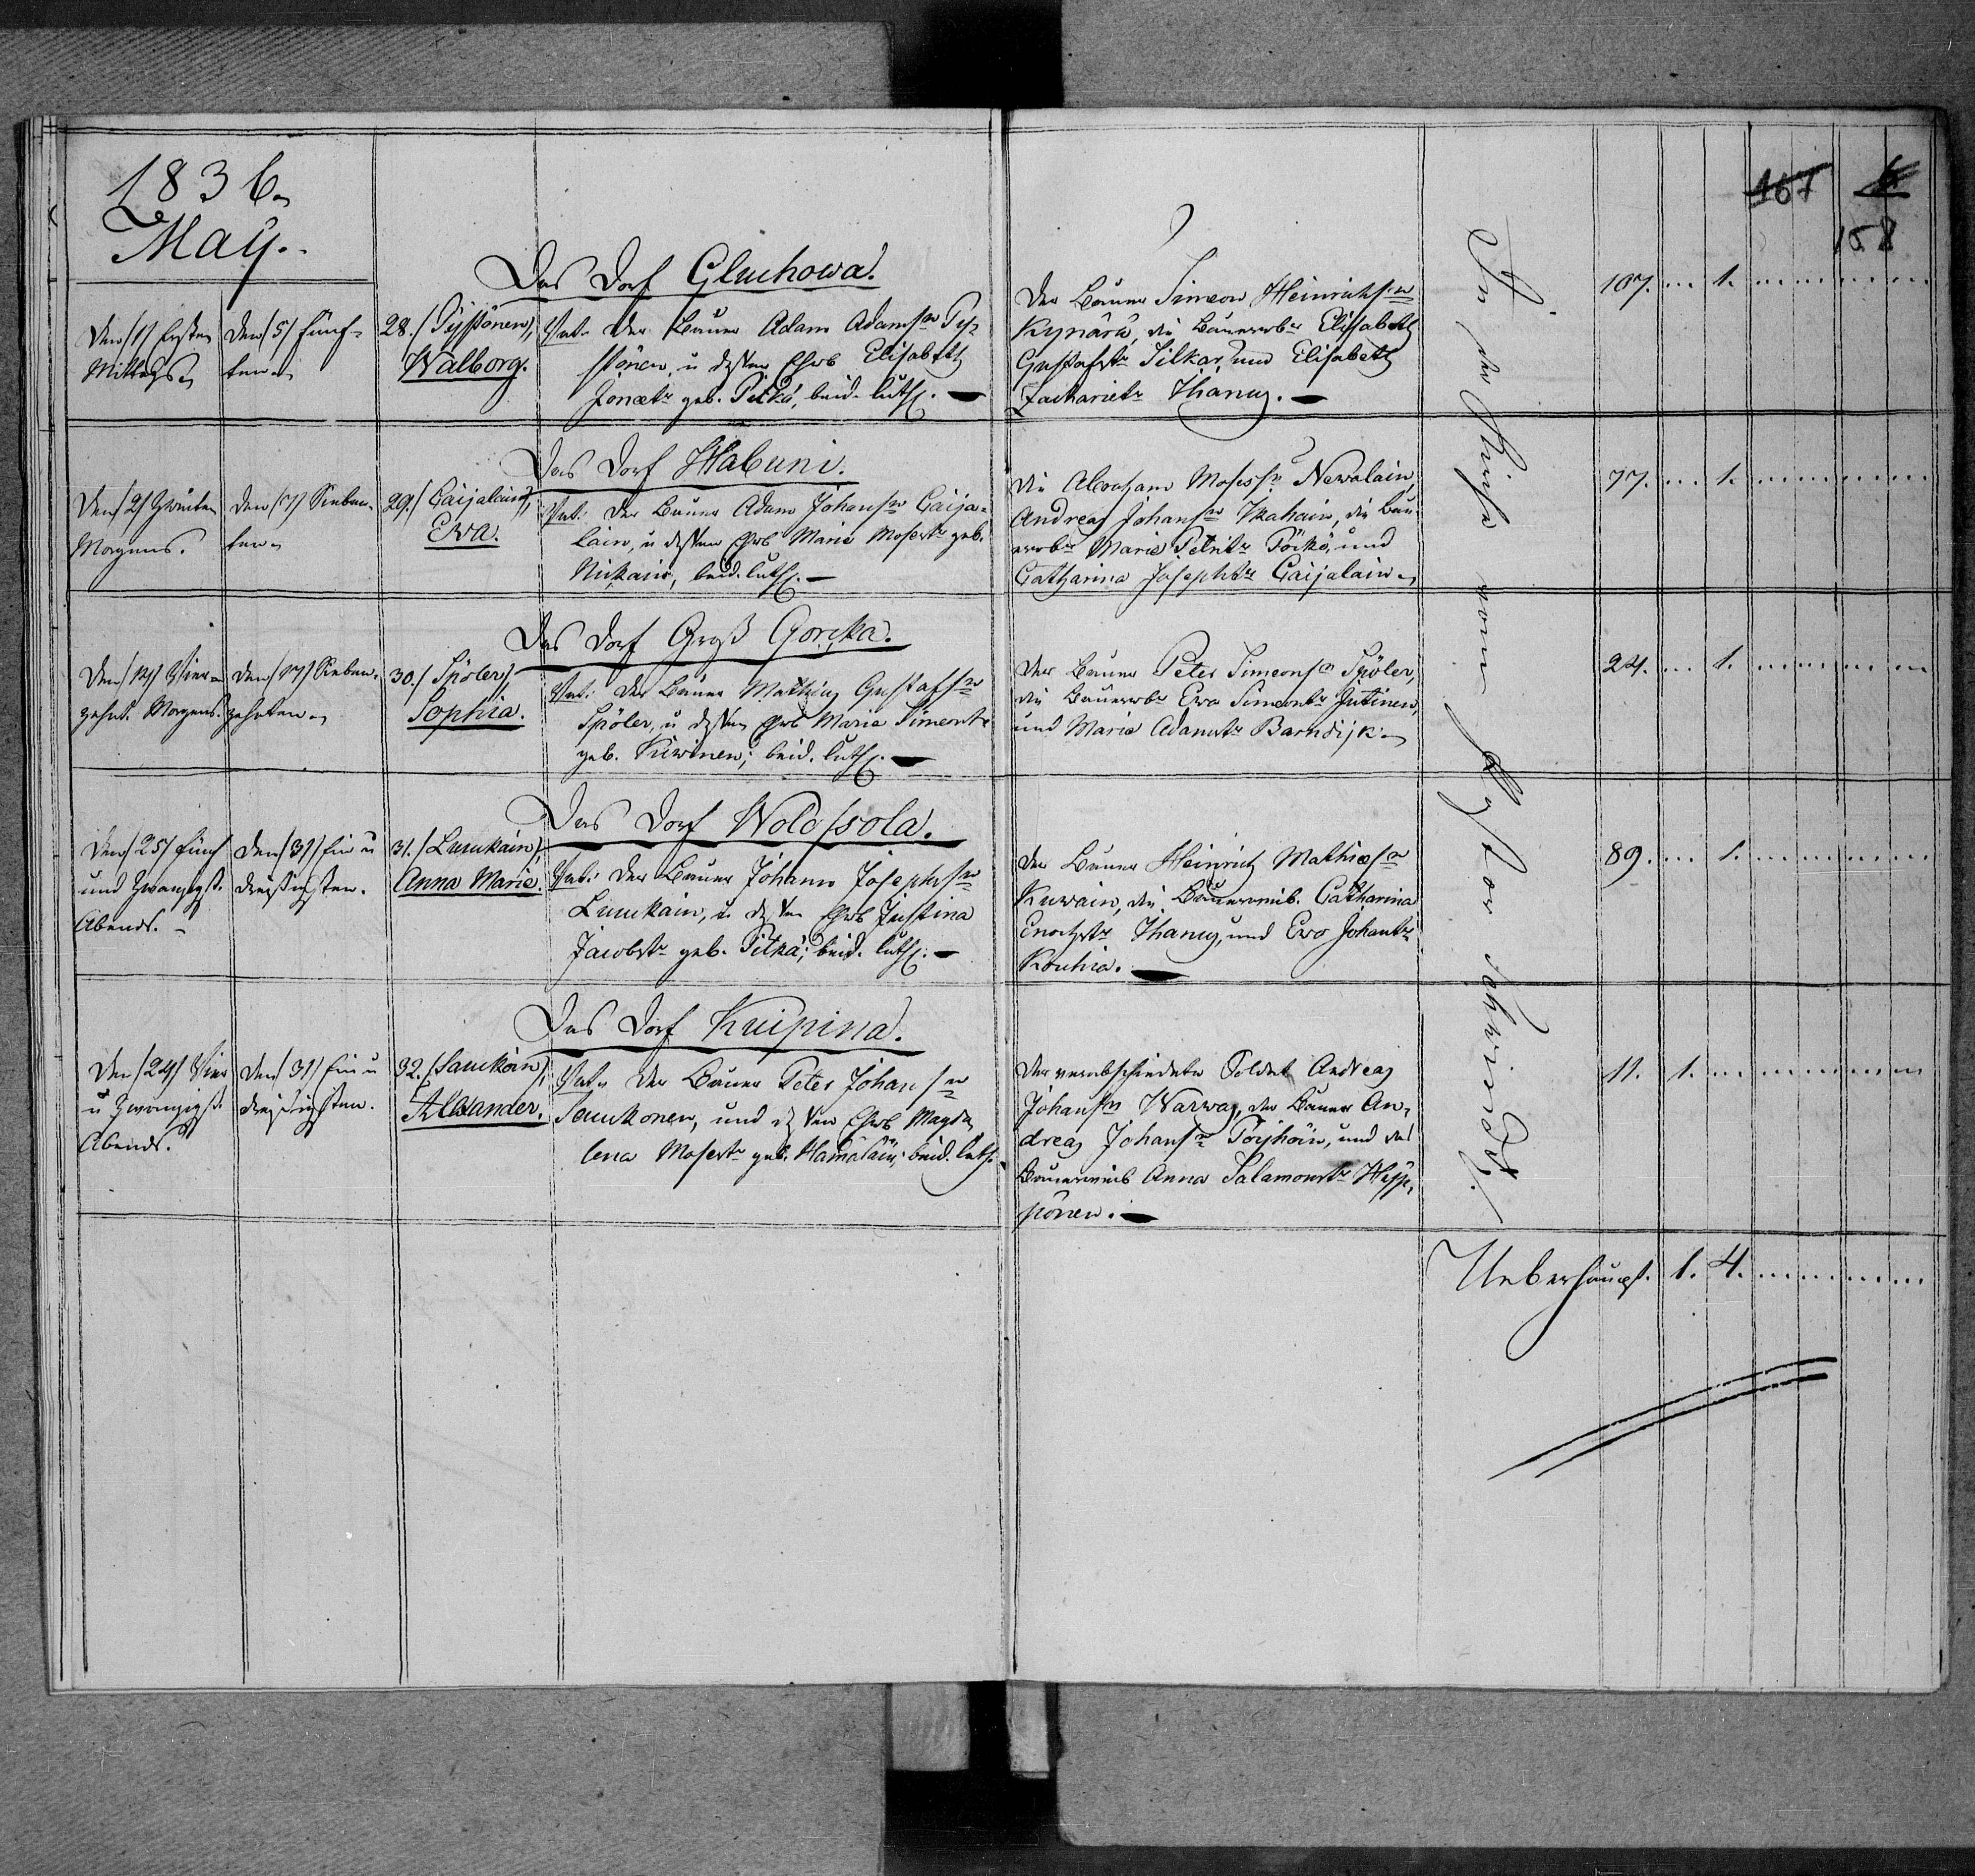 1836.
May.
167
158
Das Dorf Gluchowa.
Den /1/ Ersten
Mittags.
Den /5/ Fünf-
ten.
28. /Pyssönen/,
Walborg.
Vat. Der Bauer Adam Adamsn Pys-
sönen, u. dessen Ehwb Elisabeth
Jonastr geb. Pitkä, beid. luth.
Der Bauer Simeon Heinrichsn
Kynärä, die Bauerwbr Elisabeth
Gustafstr Silkan, und Elisabeth
Zachariastr Ihanus.
107. 1.
Das Dorf Habuni.
Den /2/ Zweiten
Morgens.
Den /7/ Sieben-
ten.
29. /Caijalain/,
Eva.
Vat: Der Bauer Adam Johansn Caija-
lain, u. dessen Ehwb Maria Mosestr geb.
Nickain, beid. luth.
Die Abraham Mosessn Newalain,
Andreas Johansn Ikahain, die Bau-
erwbr Maria Petritr Pöckö, und
Catharina Josephstr Caijalain.
77. 1.
Das Dorf Groß Gorcka.
Den /14/ Vier-
zehnt. Morgens.
Den /17/ Sieben-
zehnten.
30. /Spöler/,
Sophia.
Vat: Der Bauer Mathias Gustafsn
Spöler, u. dessen Ehwb Maria Simeontr
geb. Kuwinen; beid. luth.
Der Bauer Peter Simeonsn Spöler,
die Bauerwbr Ewa Simeontr Jutinen,
und Maria Adamstr Barndijk.
24. 1.
Das Dorf Wolossola.
Den /25/ Fünf
und Zwanzigst.
Abends.
Den /31/ Ein u
dreißigsten.
31. /Luukain/,
Anna Maria.
Vat: Der Bauer Johann Josephsn
Luukain, u. dessen Ehwb Justina
Jacobstr geb. Pitkä; beid. luth.
Der Bauer Heinrich Mathiassn
Kuwain, die Bauerweib. Catharina
Enochstr Ihanus, und Ewa Johantr
Kouhia.
89. 1.
Das Dorf Kuipina.
Den /24/ Vier
u Zwanzigst.
Abends.
Den /31/ Ein u
dreißigsten.
32. /Saukoin/,
Alexander.
Vat. Der Bauer Peter Johansn
Saukonen, und dessen Ehwb Magda-
lena Mosestr geb. Hämäläin; beid. luth.
Der verabschiedete Soldat Andreas
Johansn Warwas, der Bauer An-
dreas Johansn Pöyhöin, und das
Bauerweib Anna Salamonstr Hyp-
pönen.
11. 1.
In der Kirche vom Pastor Schrindt.
Ueberhaupt. 1. 4.